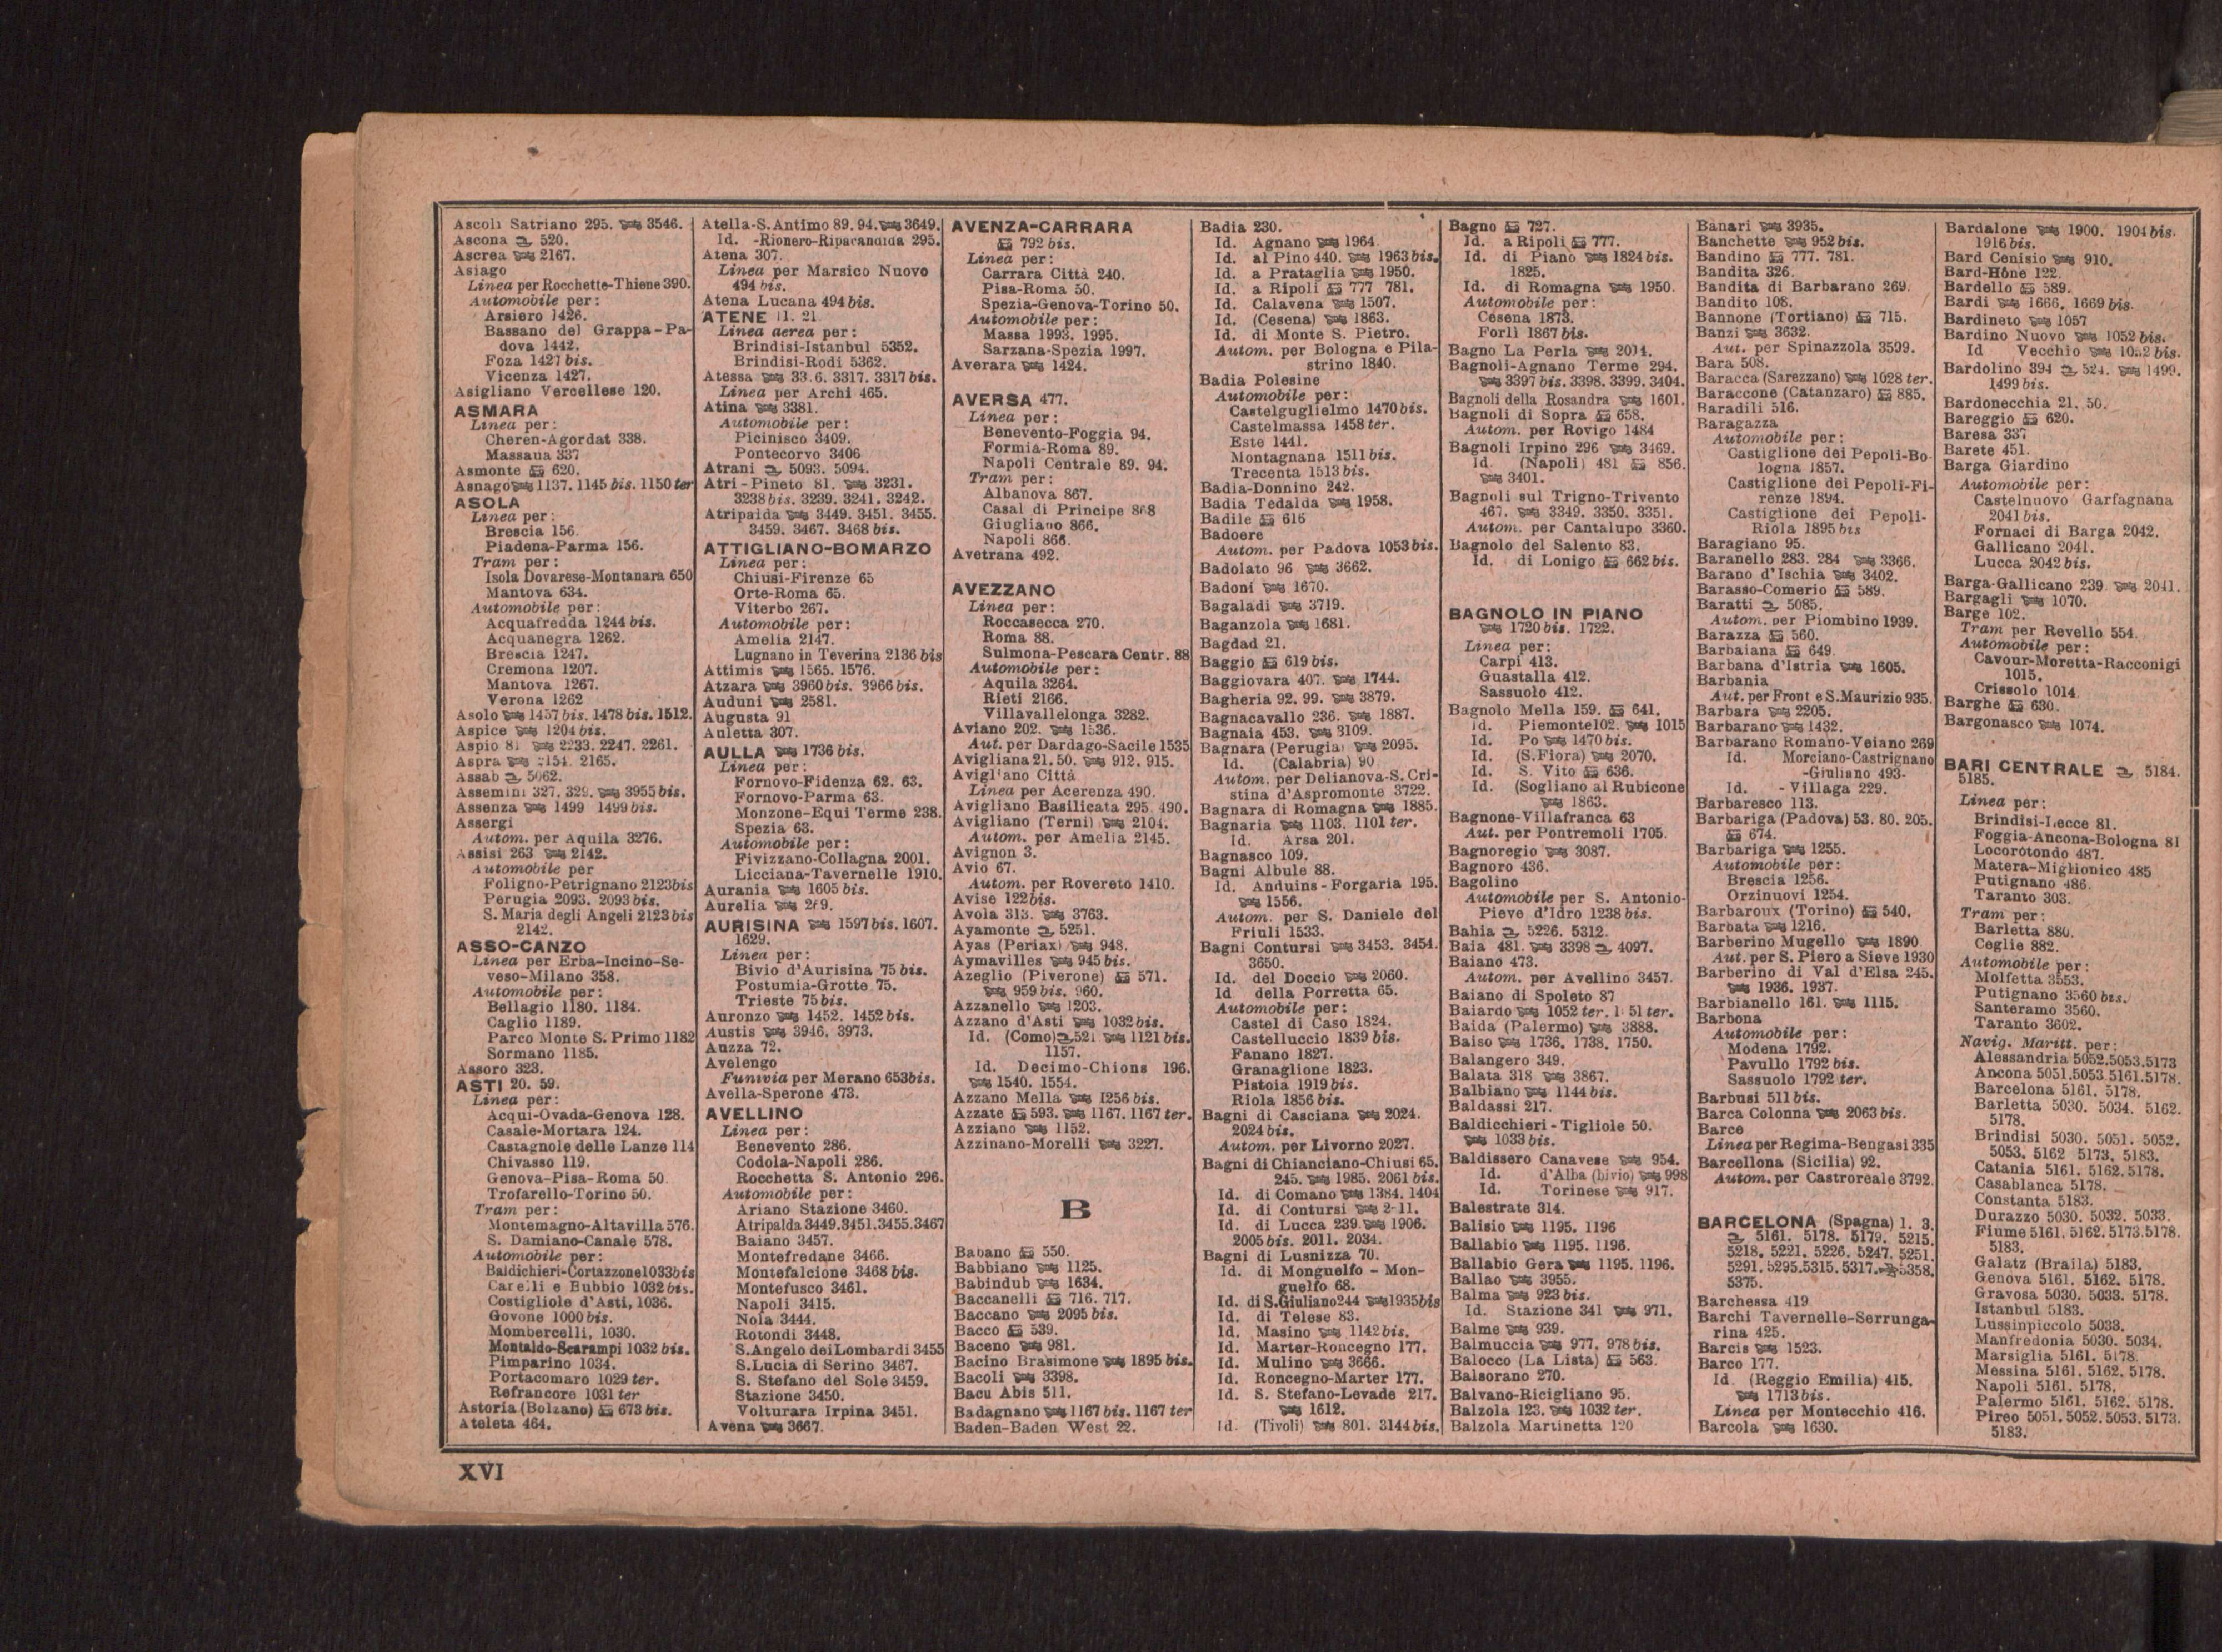 Ascoli Satriano 295. 3546.
Ascona 520.
Ascrea 2167.
Asiago
Linea per Rocchette-Thiene 390.
Automobile per:
Arsiero 1426.
Bassano del Grappa-Pa-
dova 1442.
Foza 1427 bis.
Vicenza 1427.
Asigliano Vercellese 120.
ASMARA
Linea per:
Cheren-Agordat 338.
Massaua 337
Asmonte 620.
Asnago 1137. 1145 bis. 1150 ter
ASOLA
Linea per:
Brescia 156.
Piadena-Parma 156.
Tram per:
Isola Dovarese-Montanara 650
Mantova 634.
Automobile per:
Acquafredda 1244 bis.
Acquanegra 1262.
Brescia 1247.
Cremona 1207.
Mantova 1267.
Verona 1262
Asolo 1457 bis. 1478 bis. 1512.
Aspice 1204 bis.
Aspio 81 2233. 2247. 2261.
Aspra 2154. 2165.
Assab 5062.
Assemini 327. 329. 3955 bis.
Assenza 1499 1499 bis.
Assergi
Autom. per Aquila 3276.
Assisi 263 2142.
Automobile per
Foligno-Petrignano 2123 bis
Perugia 2093. 2093 bis.
S. Maria degli Angeli 2123 bis
2142.
ASSO-CANZO
Linea per Erba-Incino-Se-
veso-Milano 358.
Automobile per:
Bellagio 1180. 1184.
Caglio 1189.
Parco Monte S. Primo 1182
Sormano 1185.
Assoro 323.
ASTI 20. 59.
Linea per:
Acqui-Ovada-Genova 128.
Casale-Mortara 124.
Castagnole delle Lanze 114
Chivasso 119.
Genova-Pisa-Roma 50.
Trofarello-Torino 50.
Tram per:
Montemagno-Altavilla 576.
S. Damiano-Canale 578.
Automobile per:
Baldichieri-Cortazzone 1033 bis
Carelli e Bubbio 1032 bis.
Costigliole d'Asti, 1036.
Govone 1000 bis.
Mombercelli, 1030.
Montaldo-Scarampi 1032 bis.
Pimparino 1034.
Portacomaro 1029 ter.
Refrancore 1031 ter
Astoria (Bolzano) 673 bis.
Ateleta 464.
Atella-S. Antimo 89. 94. 3649.
Id. -Rionero-Ripacandida 295.
Atena 307.
Linea per Marsico Nuovo
494 bis.
Atena Lucana 494 bis.
ATENE 11. 21
Linea aerea per:
Brindisi-Istanbul 5352.
Brindisi-Rodi 5362.
Atessa 33.6. 3317. 3317 bis.
Linea per Archi 465.
Atina 3381.
Automobile per:
Picinisco 3409.
Pontecorvo 3406
Atrani 5093. 5094.
Atri-Pineto 81. 3231.
3238 bis. 3239. 3241. 3242.
Atripalda 3449. 3451. 3455.
3459. 3467. 3468 bis.
ATTIGLIANO-BOMARZO
Linea per:
Chiusi-Firenze 65
Orte-Roma 65.
Viterbo 267.
Automobile per:
Amelia 2147.
Lugnano in Teverina 2136 bis
Attimis 1565. 1576.
Atzara 3960 bis. 3966 bis.
Auduni 2581.
Augusta 91
Auletta 307.
AULLA 1736 bis.
Linea per:
Fornovo-Fidenza 62. 63.
Fornovo-Parma 63.
Monzone-Equi Terme 238.
Spezia 63.
Automobile per:
Fivizzano-Collagna 2001.
Licciana-Tavernelle 1910.
Aurania 1605 bis.
Aurelia 269.
AURISINA 1597 bis. 1607.
1629.
Linea per:
Bivio d'Aurisina 75 bis.
Postumia-Grotte 75.
Trieste 75 bis.
Auronzo 1452. 1452 bis.
Austis 3946. 3973.
Auzza 72.
Avelengo
Funivia per Merano 653 bis.
Avella-Sperone 473.
AVELLINO
Linea per:
Benevento 286.
Codola-Napoli 286.
Rocchetta S. Antonio 296.
Automobile per:
Ariano Stazione 3460.
Atripalda 3449.3451.3455.3467
Baiano 3457.
Montefredane 3466.
Montefalcione 3468 bis.
Montefusco 3461.
Napoli 3415.
Nola 3444.
Rotondi 3448.
S. Angelo dei Lombardi 3455
S. Lucia di Serino 3467.
S. Stefano del Sole 3459.
Stazione 3450.
Volturara Irpina 3451.
Avena 3667.
AVENZA-CARRARA
792 bis.
Linea per:
Carrara Città 240.
Pisa-Roma 50.
Spezia-Genova-Torino 50.
Automobile per:
Massa 1993. 1995.
Sarzana-Spezia 1997.
Averara 1424.
AVERSA 477.
Linea per:
Benevento-Foggia 94.
Formia-Roma 89.
Napoli Centrale 89. 94.
Tram per:
Albanova 867.
Casal di Principe 868
Giugliano 866.
Napoli 866.
Avetrana 492.
AVEZZANO
Linea per:
Roccasecca 270.
Roma 88.
Sulmona-Pescara Centr. 88
Automobile per:
Aquila 3264.
Rieti 2166.
Villavallelonga 3282.
Aviano 202. 1536.
Aut. per Dardago-Sacile 1535
Avigliana 21. 50. 912. 915.
Avigliano Città
Linea per Acerenza 490.
Avigliano Basilicata 295. 490.
Avigliano (Terni) 2104.
Autom. per Amelia 2145.
Avignon 3.
Avio 67.
Autom. per Rovereto 1410.
Avise 122 bis.
Avola 313. 3763.
Ayamonte 5251.
Ayas (Periax) 948.
Aymavilles 945 bis.
Azeglio (Piverone) 571.
959 bis. 960.
Azzanello 1203.
Azzano d'Asti 1032 bis.
Id. (Como) 521 1121 bis.
1157.
Id. Decimo-Chions 196.
1540. 1554.
Azzano Mella 1256 bis.
Azzate 593. 1167. 1167 ter.
Azziano 1152.
Azzinano-Morelli 3227.
B
Babano 550.
Babbiano 1125.
Babindub 1634.
Baccanelli 716. 717.
Baccano 2095 bis.
Bacco 539.
Baceno 981.
Bacino Brasimone 1895 bis.
Bacoli 3398.
Bacu Abis 511.
Badagnano 1167 bis. 1167 ter
Baden-Baden West 22.
Badia 230.
Id. Agnano 1964
Id. al Pino 440. 1963 bis.
Id. a Prataglia 1950.
Id. a Ripoli 777 781.
Id. Calavena 1507.
Id. (Cesena) 1863.
Id. di Monte S. Pietro.
Autom. per Bologna e Pila-
strino 1840.
Badia Polesine
Automobile per:
Castelguglielmo 1470 bis.
Castelmassa 1458 ter.
Este 1441.
Montagnana 1511 bis.
Trecenta 1513 bis.
Badia-Donnino 242.
Badia Tedalda 1958.
Badile 616
Badoere
Autom. per Padova 1053 bis.
Badolato 96 3662.
Badoni 1670.
Bagaladi 3719.
Baganzola 1681.
Bagdad 21.
Baggio 619 bis.
Baggiovara 407. 1744.
Bagheria 92. 99. 3879.
Bagnacavallo 236. 1887.
Bagnaia 453. 3109.
Bagnara (Perugia) 2095.
Id. (Calabria) 90
Autom. per Delianova-S. Cri-
stina d'Aspromonte 3722.
Bagnara di Romagna 1885.
Bagnaria 1103. 1101 ter.
Id. Arsa 201.
Bagnasco 109.
Bagni Albule 88.
Id. Anduins-Forgaria 195.
1556.
Autom. per S. Daniele del
Friuli 1533.
Bagni Contursi 3453. 3454.
3650.
Id. del Doccio 2060.
Id della Porretta 65.
Automobile per:
Castel di Caso 1824.
Castelluccio 1839 bis.
Fanano 1827.
Granaglione 1823.
Pistoia 1919 bis.
Riola 1856 bis.
Bagni di Casciana 2024.
2024 bis.
Autom. per Livorno 2027.
Bagni di Chianciano-Chiusi 65.
245. 1985. 2061 bis.
Id. di Comano 1384. 1404
Id. di Contursi
Id. di Lucca 239. 1906.
2005 bis. 2011. 2034.
Bagni di Lusnizza 70.
Id. di Monguelfo - Mon-
guelfo 68.
Id. di S. Giuliano 244 1935 bis
Id. di Telese 83.
Id. Masino 1142 bis.
Id. Marter-Roncegno 177.
Id. Mulino 3666.
Id. Roncegno-Marter 177.
Id. S. Stefano-Levade 217.
1612.
Id. (Tivoli) 801. 3144 bis.
Bagno 727.
Id. a Ripoli 777.
Id. di Piano 1824 bis.
1825.
Id. di Romagna 1950.
Automobile per:
Cesena 1873.
Forlì 1867 bis.
Bagno La Perla 2014.
Bagnoli-Agnano Terme 294.
3397 bis. 3398. 3399. 3404.
Bagnoli della Rosandra 1601.
Bagnoli di Sopra 658.
Autom. per Rovigo 1484
Bagnoli Irpino 296 3469.
Id. (Napoli) 481 856.
3401.
Bagnoli sul Trigno-Trivento
467. 3349. 3350. 3351.
Autom. per Cantalupo 3360.
Bagnolo del Salento 83.
Id. di Lonigo 662 bis.
BAGNOLO IN PIANO
1720 bis. 1722.
Linea per:
Carpi 413.
Guastalla 412.
Sassuolo 412.
Bagnolo Mella 159. 641.
Id. Piemonte 102. 1015
Id. Po 1470 bis.
Id. (S. Fiora) 2070.
Id. S. Vito 636.
Id. (Sogliano al Rubicone
1863.
Bagnone-Villafranca 63
Aut. per Pontremoli 1705.
Bagnoregio 3087.
Bagnoro 436.
Bagolino
Automobile per S. Antonio-
Pieve d'Idro 1238 bis.
Bahia 5226. 5312.
Baia 481. 3398 4097.
Baiano 473.
Autom. per Avellino 3457.
Baiano di Spoleto 87
Baiardo 1052 ter. 1051 ter.
Baida (Palermo) 3888.
Baiso 1736. 1738. 1750.
Balangero 349.
Balata 318 3867.
Balbiano 1144 bis.
Baldassi 217.
Baldicchieri-Tigliole 50.
1033 bis.
Baldissero Canavese 954.
Id. d'Alba (bivio) 998
Id. Torinese 917.
Balestrate 314.
Balisio 1195. 1196
Ballabio 1195. 1196.
Ballabio Gera 1195. 1196.
Ballao 3955.
Balma 923 bis.
Id. Stazione 341 971.
Balme 939.
Balmuccia 977. 978 bis.
Balocco (La Lista) 563.
Balsorano 270.
Balvano-Ricigliano 95.
Balzola 123. 1032 ter.
Balzola Martinetta 120
Banari 3935.
Banchette 952 bis.
Bandino 777. 781.
Bandita 326.
Bandita di Barbarano 269.
Bandito 108.
Bannone (Tortiano) 715.
Banzi 3632.
Aut. per Spinazzola 3599.
Bara 508.
Baracca (Sarezzano) 1028 ter.
Baraccone (Catanzaro) 885.
Baradili 516.
Baragazza
Automobile per:
Castiglione dei Pepoli-Bo-
logna 1857.
Castiglione dei Pepoli-Fi-
renze 1894.
Castiglione dei Pepoli-
Riola 1895 bis
Baragiano 95.
Baranello 283. 284 3366.
Barano d'Ischia 3402.
Barasso-Comerio 589.
Baratti 5085.
Autom. per Piombino 1939.
Barazza 560.
Barbaiana 649.
Barbana d'Istria 1605.
Barbania
Aut. per Front e S. Maurizio 935.
Barbara 2205.
Barbarano 1432.
Barbarano Romano-Veiano 269
Id. Morciano-Castrignano
-Giuliano 493.
Id. - Villaga 229.
Barbaresco 113.
Barbariga (Padova) 53. 80. 205.
674.
Barbariga 1255.
Automobile per:
Brescia 1256.
Orzinuovi 1254.
Barbaroux (Torino) 540.
Barbata 1216.
Barberino Mugello 1890
Aut. per S. Piero a Sieve 1930
Barberino di Val d'Elsa 245.
1936. 1937.
Barbianello 161. 1115.
Barbona
Automobile per:
Modena 1792.
Pavullo 1792 bis.
Sassuolo 1792 ter.
Barbusi 511 bis.
Barca Colonna 2063 bis.
Barce
Linea per Regima-Bengasi 335
Barcellona (Sicilia) 92.
Autom. per Castroreale 3792.
BARCELONA (Spagna) 1. 3.
5161. 5178. 5179. 5215.
5218. 5221. 5226. 5247. 5251.
5291. 5295. 5315. 5317. 5358.
5375.
Barchessa 419
Barchi Tavernelle-Serrunga-
rina 425.
Barcis 1523.
Barco 177.
Id. (Reggio Emilia) 415.
1713 bis.
Linea per Montecchio 416.
Barcola 1630.
Bardalone 1900. 1904 bis.
1916 bis.
Bard Cenisio 910.
Bard-Hône 122.
Bardello 589.
Bardi 1666. 1669 bis.
Bardineto 1057
Bardino Nuovo 1052 bis.
Id Vecchio 1052 bis.
Bardolino 394 524. 1499.
1499 bis.
Bardonecchia 21. 50.
Bareggio 620.
Baresa 337
Barete 451.
Barga Giardino
Automobile per:
Castelnuovo Garfagnana
2041 bis.
Fornaci di Barga 2042.
Gallicano 2041.
Lucca 2042 bis.
Barga-Gallicano 239. 2041.
Bargagli 1070.
Barge 102.
Tram per Revello 554.
Automobile per:
Cavour-Moretta-Racconigi
1015.
Crissolo 1014.
Barghe 630.
Bargonasco 1074.
BARI CENTRALE 5184.
5185.
Linea per:
Brindisi-Lecce 81.
Foggia-Ancona-Bologna 81
Locorotondo 487.
Matera-Miglionico 485
Putignano 486.
Taranto 303.
Tram per:
Barletta 880.
Ceglie 882.
Automobile per:
Molfetta 3553.
Putignano 3560 bis.
Santeramo 3560.
Taranto 3602.
Navig. Maritt. per:
Alessandria 5052.5053.5173
Ancona 5051.5053.5161.5178.
Barcelona 5161. 5178.
Barletta 5030. 5034. 5162.
5178.
Brindisi 5030. 5051. 5052.
5053. 5162 5173. 5183.
Catania 5161. 5162. 5178.
Casablanca 5178.
Constanta 5183.
Durazzo 5030. 5032. 5033.
Fiume 5161. 5162. 5173.5178.
5183.
Galatz (Braila) 5183.
Genova 5161. 5162. 5178.
Gravosa 5030. 5033. 5178.
Istanbul 5183.
Lussinpiccolo 5033.
Manfredonia 5030. 5034.
Marsiglia 5161. 5178.
Messina 5161. 5162. 5178.
Napoli 5161. 5178.
Palermo 5161. 5162. 5178.
Pireo 5051. 5052. 5053. 5173.
5183.
XVI